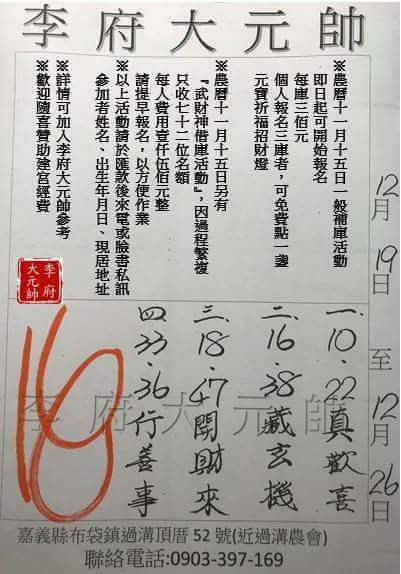 李府大元帥
※農曆十一月十五日一般補庫活動
即日起可開始報名
每庫三佰元
個人報名三庫者,可免費點一盞
元寶祈福招財燈
※農曆十一月十五日另有
『武財神借庫活動』,因過程繁複
只收七十二位名額
每人費用壹仟伍佰元整
請提早報名,以方便作業
※以上活動請於匯款後來電或臉書私訊
參加者姓名、出生年月日、現居地址
※詳情可加入李府大元帥參考
※歡迎隨喜贊助建宮經費
李府大元帥
12月19日至12月26日
一.10.22真歡喜
二.16.38藏玄機
三.18.47開財來
四.33.36行善事
16
李府大元帥
嘉義縣布袋鎮過溝頂厝52號(近過溝農會)
聯絡電話:0903-397-169